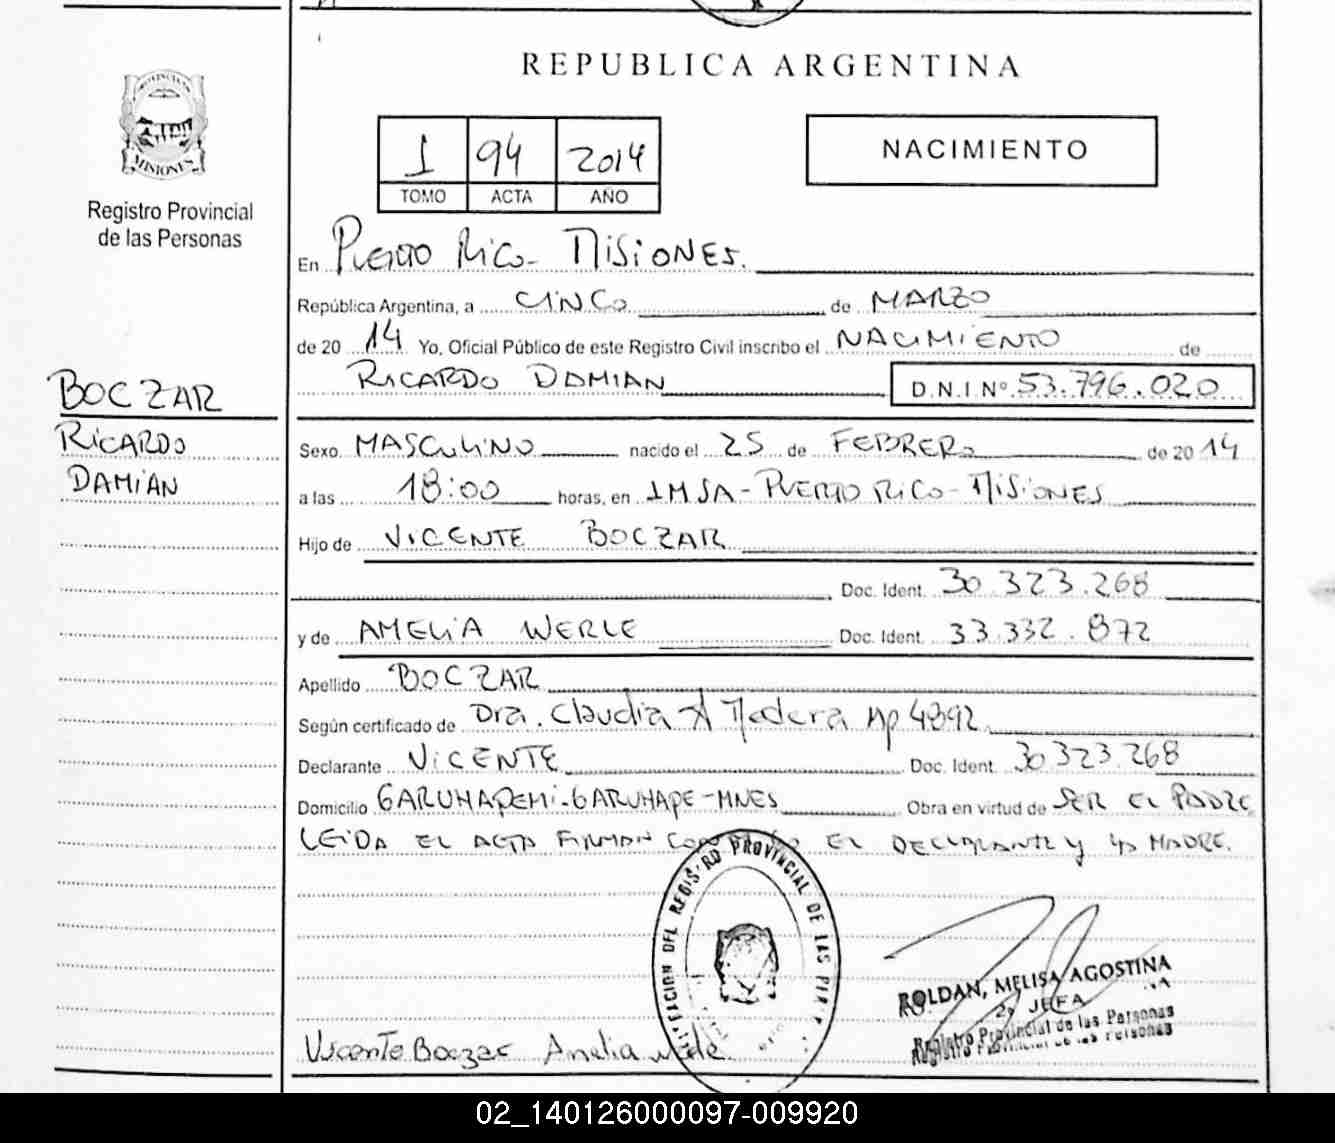 REPUBLICA ARGENTINA
MISIONES
Registro Provincial
de las Personas
1 94 2014
TOMO ACTA AÑO
NACIMIENTO
En PUERTO RICO - MISIONES.
República Argentina, a CINCO de MARZO
de 20 14 Yo, Oficial Público de este Registro Civil inscribo el NACIMIENTO de
RICARDO DAMIAN D.N.I Nº 53.796.020
BOCZAR
RICARDO
DAMIAN
Sexo MASCULINO nacido el 25 de FEBRERO de 20 14
a las 18:00 horas, en IMSA - PUERTO RICO - MISIONES
Hijo de VICENTE BOCZAR
Doc. Ident. 30.323.268
y de AMELIA WERLE Doc. Ident. 33.332.872
Apellido BOCZAR
Según certificado de Dra. Claudia A Medera Mp 4892
Declarante VICENTE Doc. Ident. 30 323 268
Domicilio GARUHAPEMI - GARUHAPE - MNES Obra en virtud de SER EL PADRE
LEIDA EL ACTA FIRMAN EL DECLARANTE y LA MADRE.
DEL REGISTRO PROVINCIAL DE LAS
ROLDAN, MELISA AGOSTINA
JEFA
Registro Provincial de las Personas
Vicente Boczar Amelia Werle
02_140126000097-009920